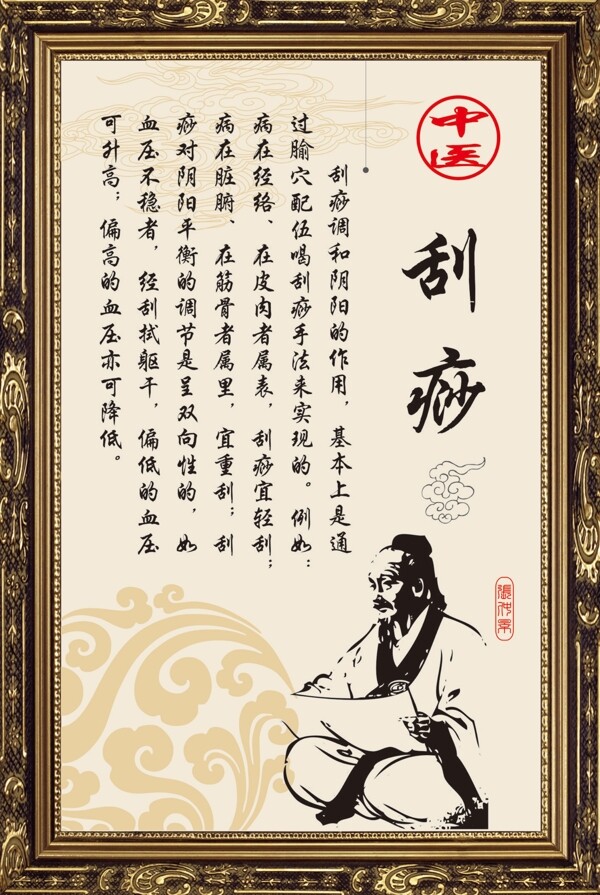 中医
刮痧
刮痧调和阴阳的作用，基本上是通
过腧穴配伍喝刮痧手法来实现的。例如：
病在经络、在皮肉者属表，刮痧宜轻刮；
病在脏腑、在筋骨者属里，宜重刮；刮
痧对阴阳平衡的调节是呈双向性的，如
血压不稳者，经刮拭躯干，偏低的血压
可升高；偏高的血压亦可降低。
張仲景